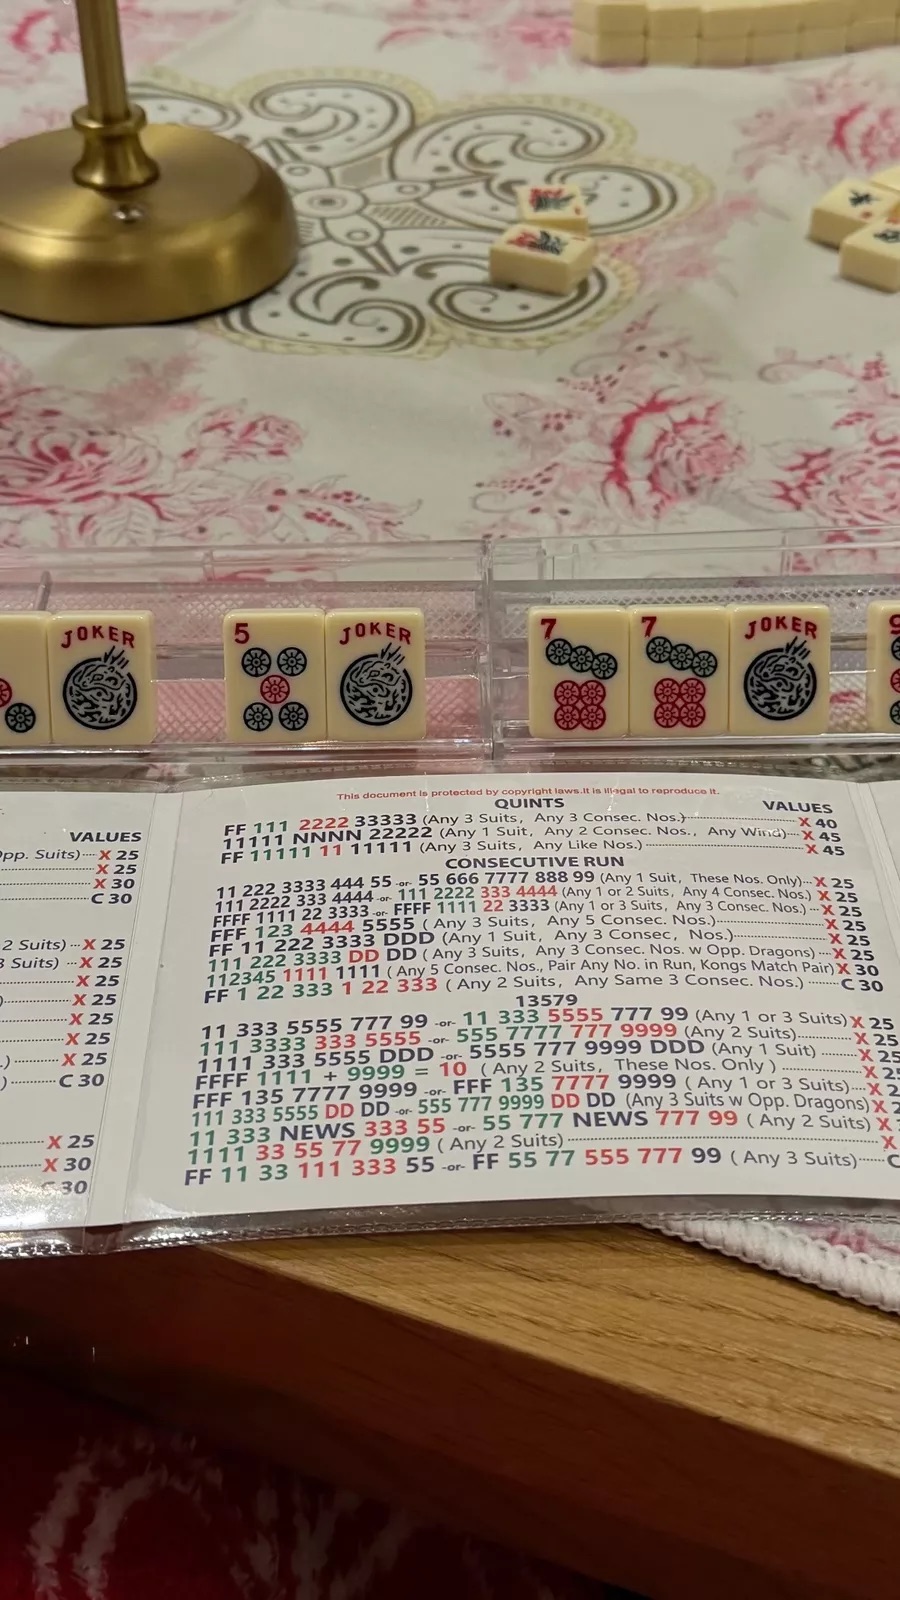 JOKER
5
JOKER
7
7
JOKER
9
VALUES
Opp. Suits)---X 25
X 25
X 30
C 30
2 Suits)---X 25
3 Suits) ---X 25
X 25
X 25
X 25
X 25
X 25
C 30
X 25
X 30
C 30
This document is protected by copyright laws.It is illegal to reproduce it.
QUINTS VALUES
FF 111 2222 33333 (Any 3 Suits, Any 3 Consec. Nos.) X 40
11111 NNNN 22222 (Any 1 Suit, Any 2 Consec. Nos., Any Wind)---X 45
FF 11111 11 11111 (Any 3 Suits, Any Like Nos.) X 45
CONSECUTIVE RUN
11 222 3333 444 55 -or- 55 666 7777 888 99 (Any 1 Suit, These Nos. Only)---X 25
111 2222 333 4444 -or- 111 2222 333 4444 (Any 1 or 2 Suits, Any 4 Consec. Nos.) X 25
FFFF 1111 22 3333 -or- FFFF 1111 22 3333 (Any 1 or 3 Suits, Any 3 Consec. Nos.) ---X 25
FFF 123 4444 5555 ( Any 3 Suits, Any 5 Consec. Nos.) X 25
FF 11 222 3333 DDD (Any 1 Suit, Any 3 Consec, Nos.) X 25
111 222 3333 DD DD (Any 3 Suits, Any 3 Consec. Nos. w Opp. Dragons)---X 25
112345 1111 1111 ( Any 5 Consec. Nos., Pair Any No. in Run, Kongs Match Pair) X 30
FF 1 22 333 1 22 333 ( Any 2 Suits, Any Same 3 Consec. Nos.) C 30
13579
11 333 5555 777 99 -or- 11 333 5555 777 99 (Any 1 or 3 Suits) X 25
111 3333 333 5555 -or- 555 7777 777 9999 (Any 2 Suits) X 25
1111 333 5555 DDD -or- 5555 777 9999 DDD (Any 1 Suit) X 25
FFFF 1111 + 9999 = 10 ( Any 2 Suits, These Nos. Only ) X 25
FFF 135 7777 9999 -or- FFF 135 7777 9999 ( Any 1 or 3 Suits)---X 2
111 333 5555 DD DD -or- 555 777 9999 DD DD (Any 3 Suits w Opp. Dragons) X 2
11 333 NEWS 333 55 -or- 55 777 NEWS 777 99 ( Any 2 Suits) X
1111 33 55 77 9999 ( Any 2 Suits) X
FF 11 33 111 333 55 -or- FF 55 77 555 777 99 ( Any 3 Suits) C